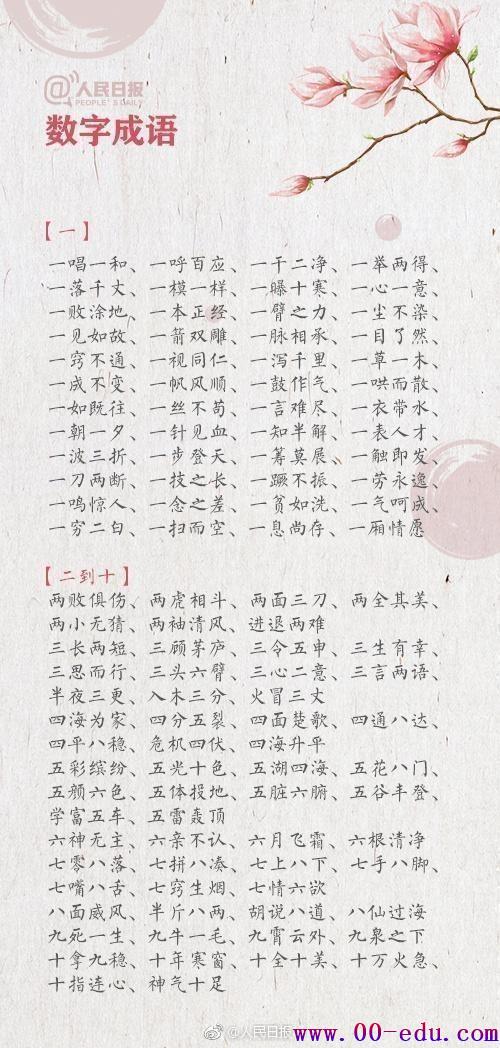 @人民日报
PEOPLE'S DAILY
数字成语
【一】
一唱一和、一呼百应、一干二净、一举两得、
一落千丈、一模一样、一曝十寒、一心一意、
一败涂地、一本正经、一臂之力、一尘不染、
一见如故、一箭双雕、一脉相承、一目了然、
一窍不通、一视同仁、一泻千里、一草一木、
一成不变、一帆风顺、一鼓作气、一哄而散、
一如既往、一丝不苟、一言难尽、一衣带水、
一朝一夕、一针见血、一知半解、一表人才、
一波三折、一步登天、一筹莫展、一触即发、
一刀两断、一技之长、一蹶不振、一劳永逸、
一鸣惊人、一念之差、一贫如洗、一气呵成、
一穷二白、一扫而空、一息尚存、一厢情愿
【二到十】
两败俱伤、两虎相斗、两面三刀、两全其美、
两小无猜、两袖清风、进退两难
三长两短、三顾茅庐、三令五申、三生有幸、
三思而行、三头六臂、三心二意、三言两语、
半夜三更、入木三分、火冒三丈
四海为家、四分五裂、四面楚歌、四通八达、
四平八稳、危机四伏、四海升平
五彩缤纷、五光十色、五湖四海、五花八门、
五颜六色、五体投地、五脏六腑、五谷丰登、
学富五车、五雷轰顶
六神无主、六亲不认、六月飞霜、六根清净
七零八落、七拼八凑、七上八下、七手八脚、
七嘴八舌、七窍生烟、七情六欲
八面威风、半斤八两、胡说八道、八仙过海
九死一生、九牛一毛、九霄云外、九泉之下
十拿九稳、十年寒窗、十全十美、十万火急、
十指连心、神气十足
@人民日报
www.00-edu.com